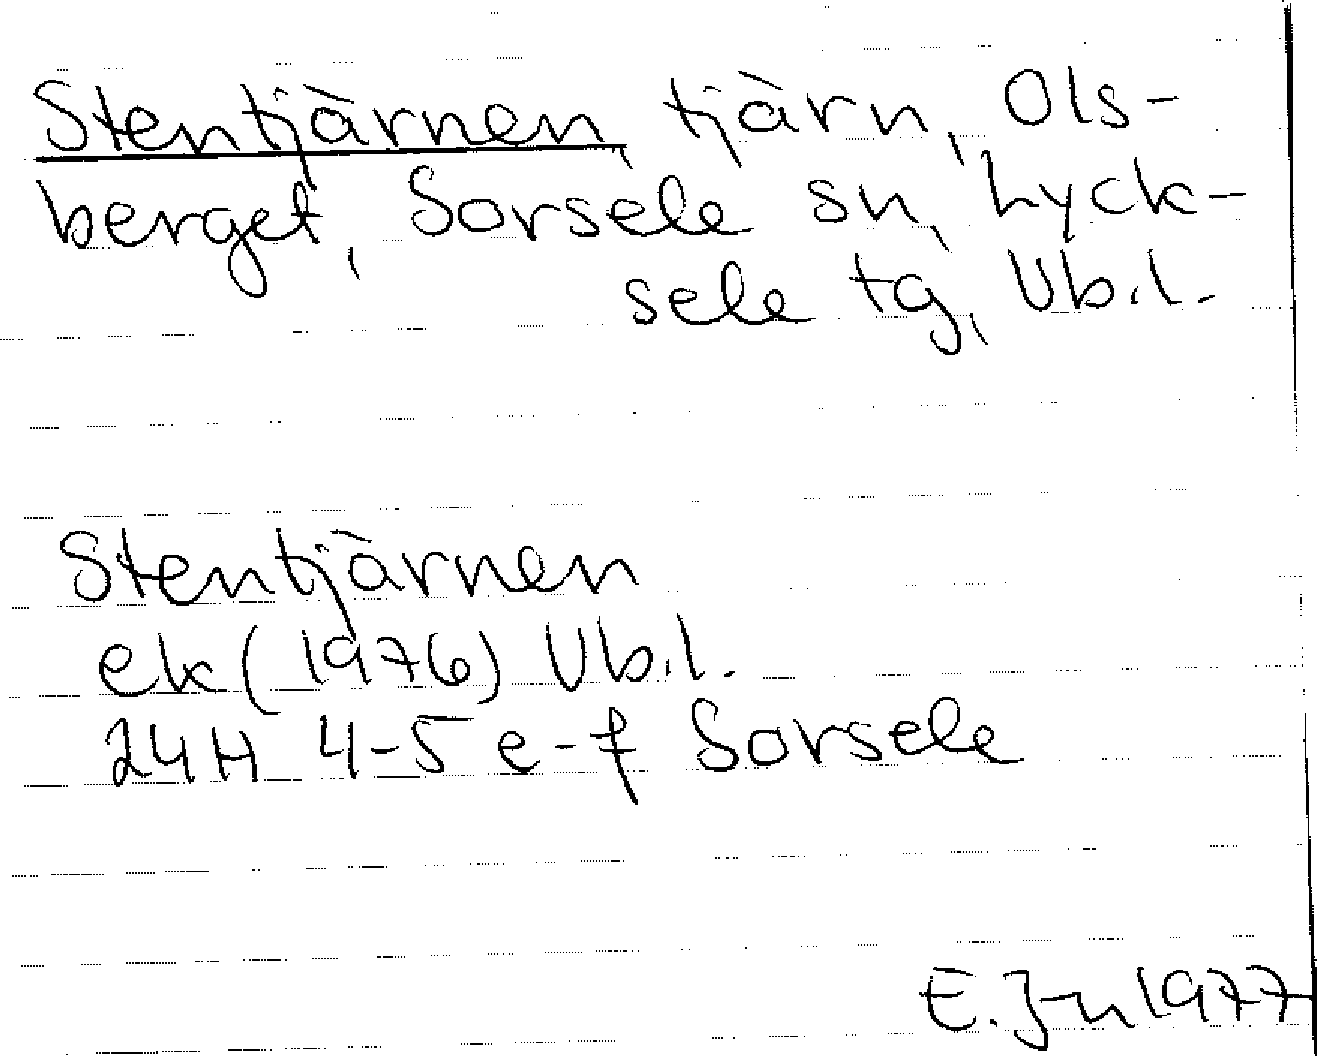 Stentjärnen, tjärn, Ols-
berget, Sorsele sn, Lyck-
sele tg, Vb.l.
Stentjärnen
ek (1976) Vb.l.
24H 4-5 e-f Sorsele
E.J-n 1977